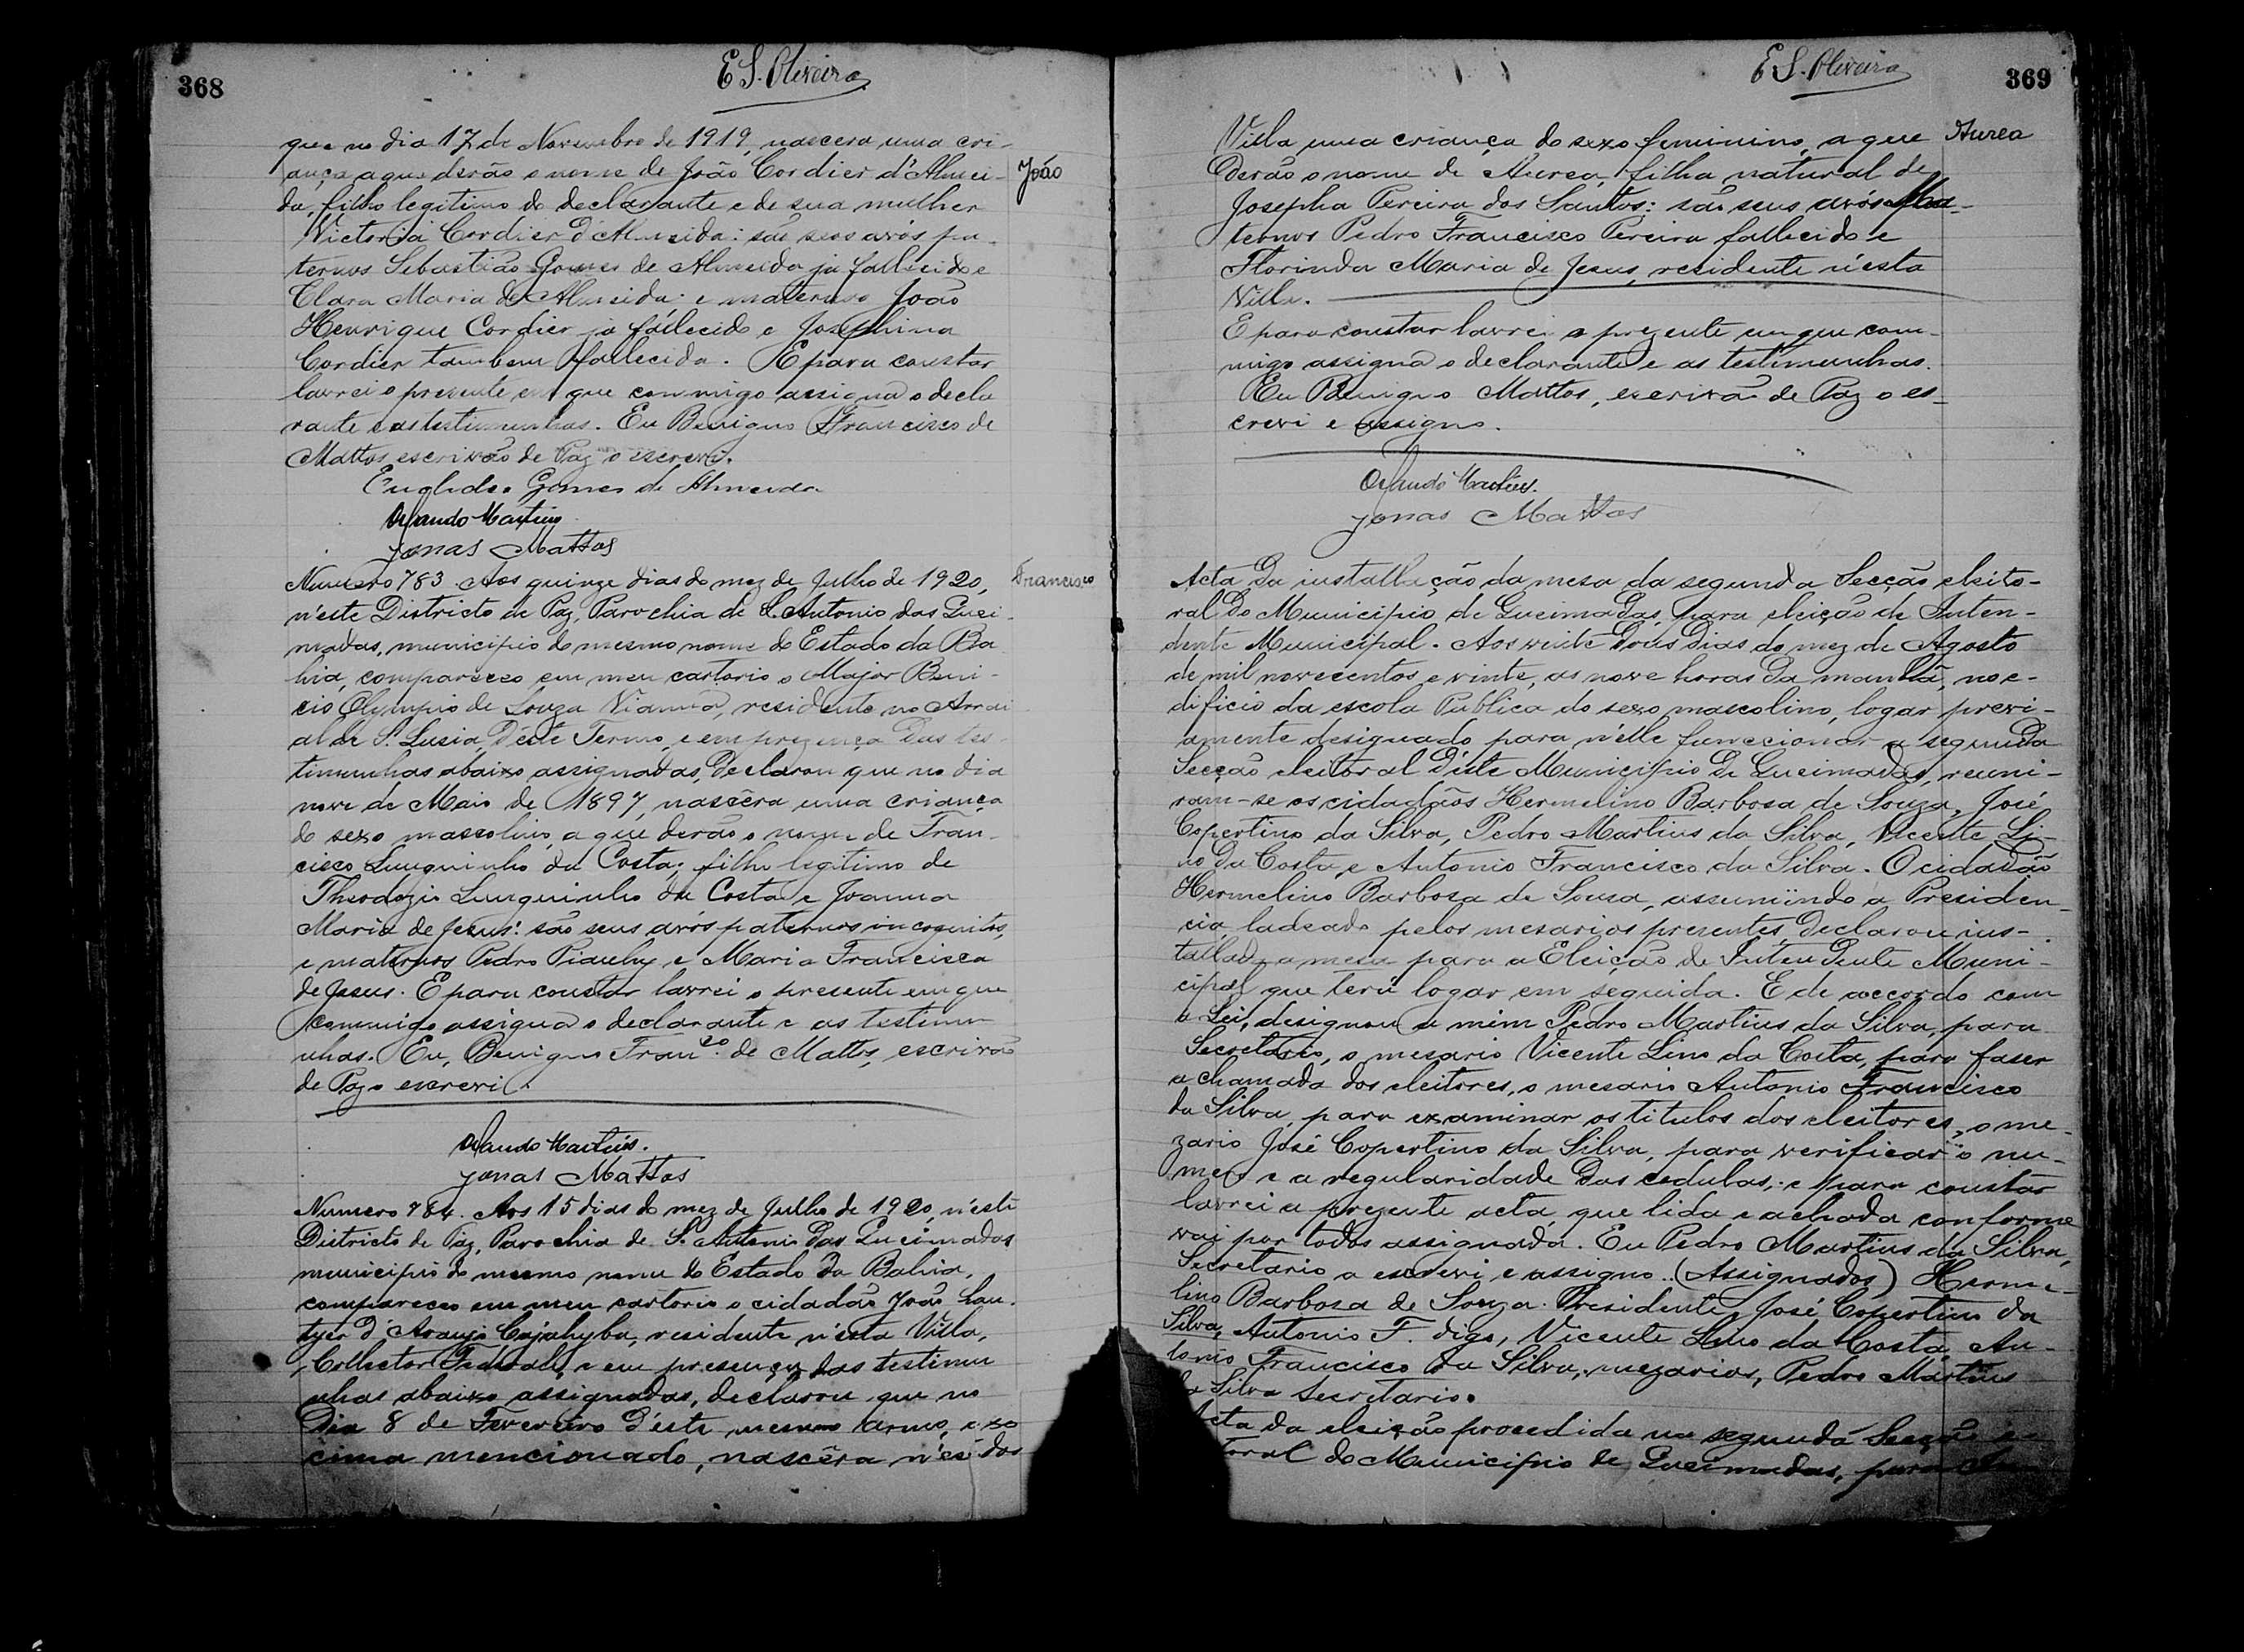 368
E S. Oliveira
que no dia 17 de Novembro de 1919, nascera uma cri-
ança a que derão o nome de João Cordier d'Almei-
da, filho legitimo do declarante e de sua mulher
Victoria Cordier d'Almeida: são seus avós pa-
ternos Sebastião Gomes de Almeida já fallecido e
Clara Maria de Almeida: e maternos João
Henrique Cordier já fallecido e Josephina
Cordier tambem fallecida. E para constar
lavrei o presente em que commigo assigna o decla
rante e as testimunhas. Eu Benigno Francisco de
Mattos escrivão de Paz o escrevi.
Euglides Gomes de Almeida
Orlando Martins
Jonas Mattos
João
Numero 783. Aos quinze dias do mez de Julho de 1920,
n'este Districto de Paz, Parochia de S. Antonio das Quei-
madas, municipio do mesmo nome do Estado da Ba
hia, compareceo em meu cartorio o Major Beni-
cio Olympio de Souza Vianna, residente no Arrai
al de S. Lusia, d'este Termo, e em prezença das tes-
timunhas abaixo assignadas, declarou que no dia
nove de Maio de 1897, nascêra uma criança
do sexo mascolino, a que derão o nome de Fran-
cisco Lunguinho da Costa; filho legitimo de
Theodozio Lunguinho da Costa e Joanna
Maria de Jesus: são seus avós paternos incognitos,
e maternos Pedro Piauhy e Maria Francisca
de Jesus. E para constar lavrei o presente em que
commigo assigna o declarante e as testimu
nhas. Eu, Benigno Franco. de Mattos, escrivão
de Paz o escrevi.
Orlando Martins.
Jonas Mattos
Francisco
Numero 784. Aos 15 dias do mez de Julho de 1920, n'este
Districto de Paz, Parochia de S. Antonio das Queimadas
municipio do mesmo nome do Estado da Bahia,
compareceo em meu cartorio o cidadão João
d'Araujo Cajahyba, residente n'esta Villa,
Collector Federal, e em presença das testimu
nhas abaixo assignadas, declarou que no
Dia 8 de Fevereiro d'este mesmo anno,
cima mencionado, nascêra
369
E S. Oliveira
Villa uma criança do sexo feminino, a que
Derão o nome de Aurea, filha natural de
Josepha Pereira dos Santos: são seus avós Ma-
ternos Pedro Francisco Pereira fallecido e
Florinda Maria de Jesus, residente n'esta
Villa.
E para constar lavrei o prezente em que com-
migo assigna o declarante e as testimunhas.
Eu Benigno Mattos, escrivão de Paz o es-
crevi e assigno.
Orlando Martins.
Jonas Mattos
Aurea
Acta da installação da mesa da segunda Secção eleito-
ral do Municipio de Queimadas, para eleição de Inten-
dente Municipal. Aos vinte dous Dias do mez de Agosto
de mil novecentos e vinte, as nove horas da manhã, no e-
dificio da escola Publica do sexo mascolino, logar previ-
amente designado para n'elle funccionar a segunda
Secção eleitoral d'este Municipio de Queimadas, reuni-
ram-se os cidadãos Hermelino Barbosa de Souza, José
Copertino da Silva, Pedro Martins da Silva, Vicente Li-
no da Costa, e Antonio Francisco da Silva. O cidadão
Hermelino Barbosa de Sousa, assumindo a Presiden-
cia, ladeado pelos mesarios presentes, declarou ins-
tallada a mesa para a Eleição de Intendente Muni-
cipal que terá logar em seguida. E de accordo com
a Lei, designou a mim Pedro Martins da Silva, para
Secretario, o mesario Vicente Lino da Costa, para faser
a chamada dos eleitores, o mesario Antonio Francisco
da Silva, para examinar os titulos dos eleitores, o me-
zario José Copertino da Silva, para verificar o nu-
mero e a regularidade das cedulas; e para constar
lavrei a prezente acta, que lida e achada conforme
vai por todos assignada. Eu Pedro Martins da Silva,
Secretario a escrevi e assigno. (Assignados) Herme-
lino Barbosa de Souza. Presidente, José Copertino da
Silva, Antonio F. digo, Vicente Lino da Costa, An-
tonio Francisco da Silva, mezarios, Pedro Martins
da Silva Secretario.
Acta da eleição procedida na segunda Secção
toral do Municipio de Queimadas, para